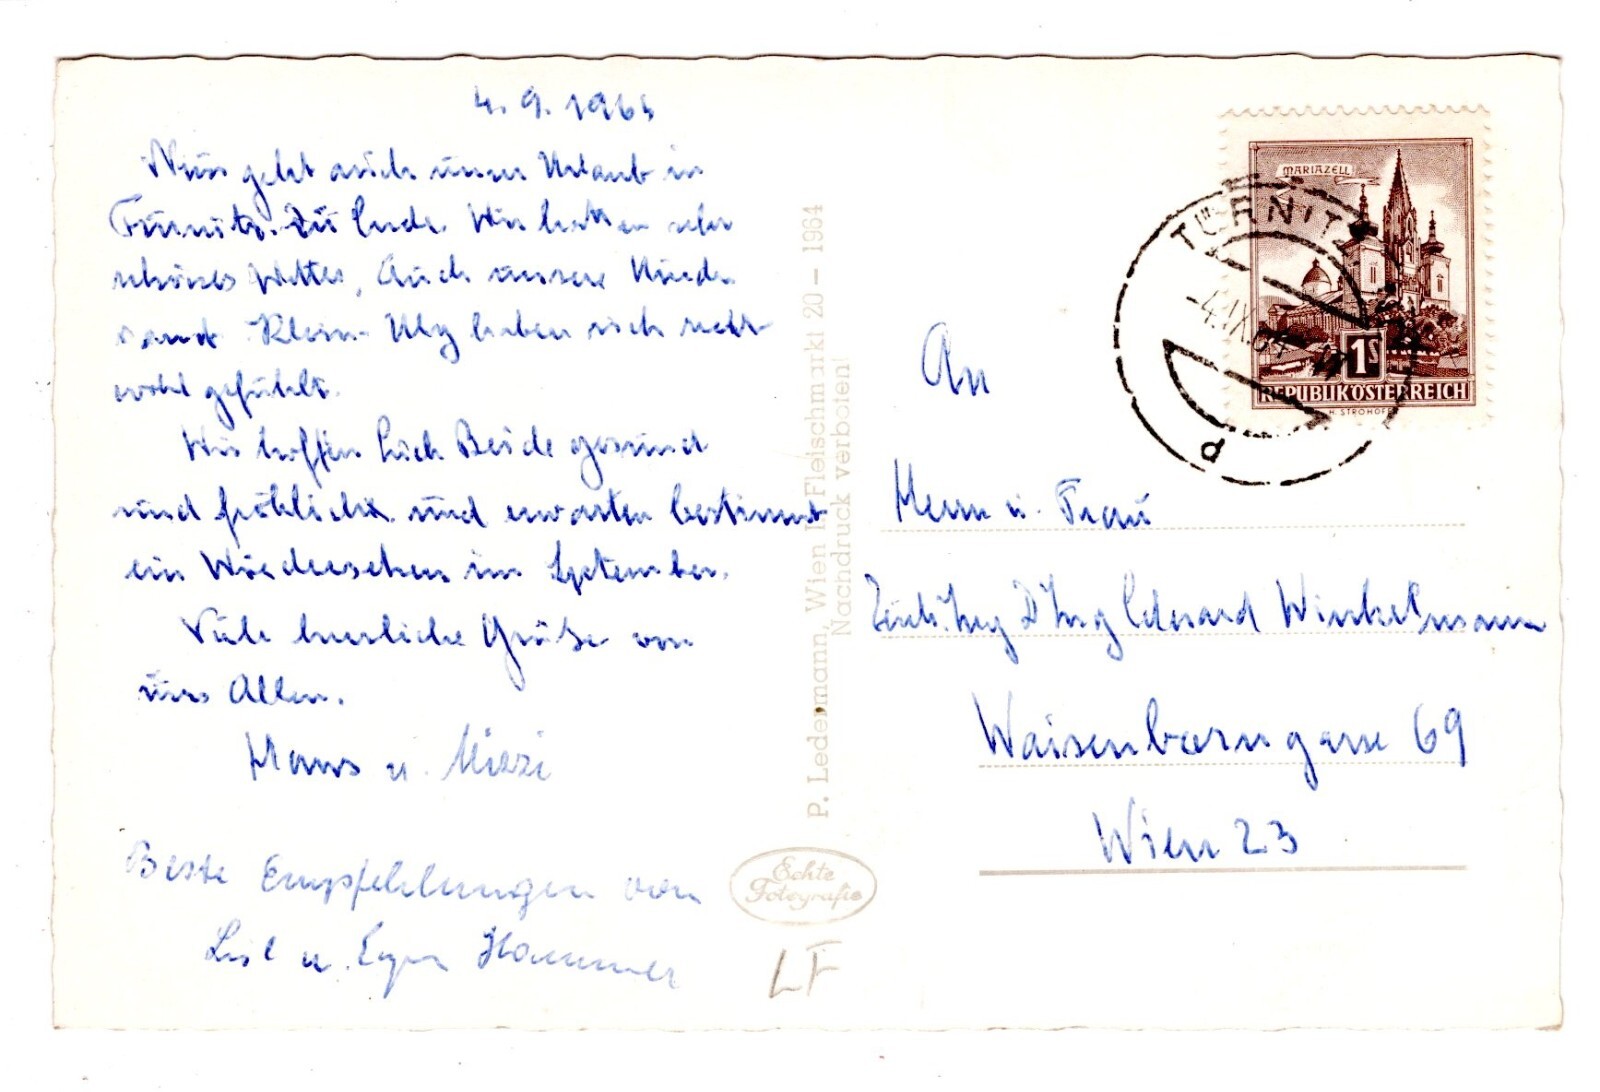 4. 9. 1964
Nun geht auch unser Urlaub in
Türnitz zu Ende. Wir hatten sehr
schönes Wetter, Auch unsere Kinder
samt Klein-Uly haben sich recht
wohl gefühlt.
Wir hoffen Euch Beide gesund
und fröhlich und erwarten bestimmt
ein Wiedersehen im September.
Viele herzliche Grüße von
uns Allen.
Hans u. Mizzi
Beste Empfehlungen von
Lisl u. Egon Hammer
P. Ledermann, Wien I, Fleischmarkt 20 – 1964
Nachdruck verboten!
Echte
Fotografie
LF
MARIAZELL
1S
REPUBLIK ÖSTERREICH
H. STROHOFER
TÜRNITZ
-4.IX.64-17
d
An
Herrn u. Frau
Ing Eduard Winkelmann
Waisenhorngasse 69
Wien 23